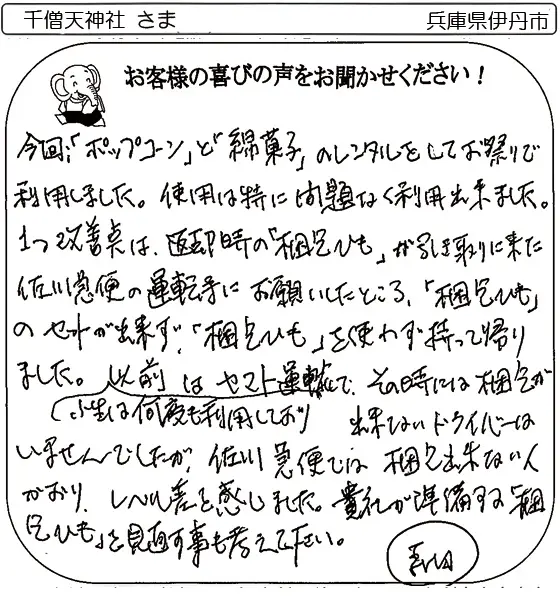 千僧天神社 さま
兵庫県伊丹市
お客様の喜びの声をお聞かせください!
今回、「ポップコーン」と「綿菓子」のレンタルをしてお祭りで
利用しました。使用は特に問題なく利用出来ました。
1つ改善点は、返却時の「梱包ひも」が引き取りに来た
佐川急便の運転手にお願いしたところ、「梱包ひも」
のセットが出来ず、「梱包ひも」を使わず持って帰り
ました。以前はヤマト運輸で、その時には梱包が
(小生は何度も利用しており
出来ないドライバーは
いませんでしたが、佐川急便では梱包出来ない人
がおり、レベル差を感じました。貴社が準備する「梱
包ひも」を見直す事も考えて下さい。